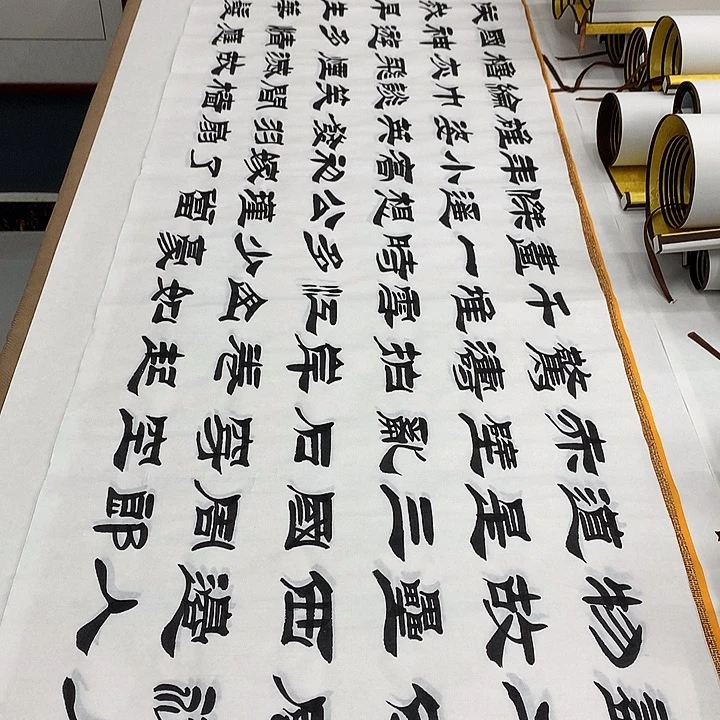 物故壘西邊人
道是三國周郎
赤壁亂石穿空
驚濤拍岸卷起
千堆雪江山如
畫一時多少豪
傑遙想公瑾當
年小喬初嫁了
雄姿英發羽扇
綸巾談笑間檣
櫓灰飛煙滅故
國神遊多情應